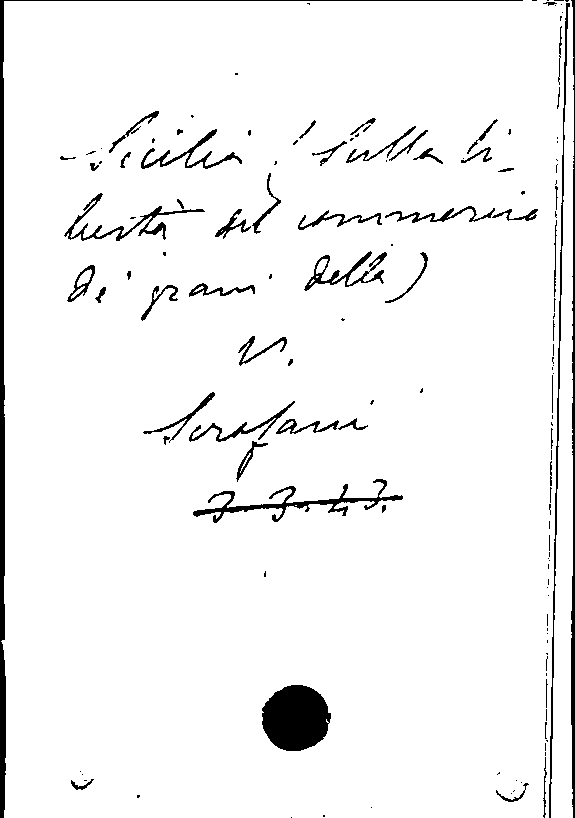 Sicilia (Sulla li-
bertà del commercio
de' grani della)
V.
Scrofani
3. 3. L. 3.